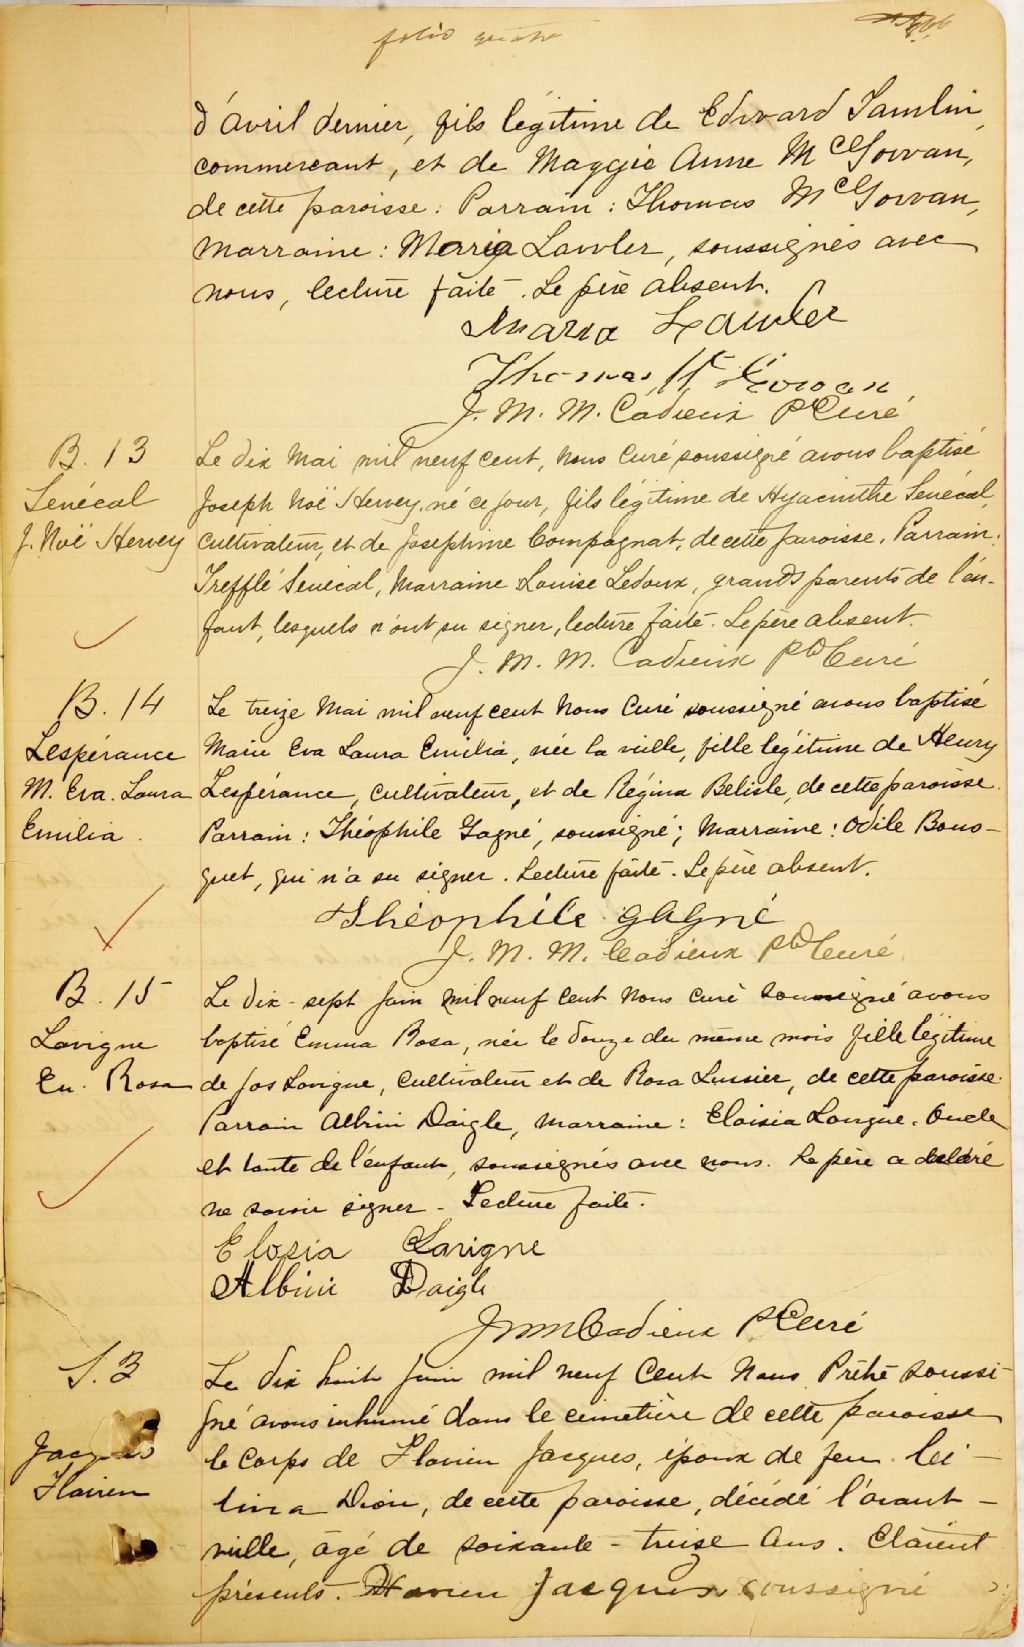 folio quatre
d'avril dernier, fils légitime de Edward Tamlin,
commercant, et de Maggie Anne McGowan,
de cette paroisse: Parrain: Thomas McGowan,
Marraine: Maria Lawler, soussignés avec
nous, lecture faite. Le père absent.
Maria Lawler
Thomas Mc Gowan
J. M. M. Cadieux Ptre Curé
B. 13
Senécal
J. Noë Hervey
Le dix Mai mil neuf cent, Nous Curé soussigné avons baptisé
Joseph Noë Hervey, né ce jour, fils légitime de Hyacinthe Senécal,
cultivateur, et de Josephine Compagnat, de cette paroisse. Parrain:
Trefflé Senécal, Marraine Louise Ledoux, grands parents de l'en-
fant, lesquels n'ont su signer, lecture faite. Le père absent.
J. M. M. Cadieux Ptre Curé
B. 14
Lespérance
M. Eva. Laura
Emilia
Le treize Mai mil neuf cent Nous Curé soussigné avons baptisé
Marie Eva Laura Emilia, née la veille, fille légitime de Henry
Lespérance, cultivateur, et de Régina Belisle, de cette paroisse.
Parrain: Théophile Gagné, soussigné; Marraine: Odile Bous-
quet, qui n'a su signer. Lecture faite. Le père absent.
Théophile Gagné
J. M. M. Cadieux Ptre Curé
B. 15
Lavigne
Em. Rosa
Le dix-sept Juin mil neuf cent Nous curé soussigné avons
baptisé Emma Rosa, née le douze du même mois fille légitime
de Jos Lavigne, cultivateur et de Rosa Lussier, de cette paroisse.
Parrain Albini Daigle, Marraine: Eloisia Lavigne. Oncle
et tante de l'enfant, soussignés avec nous. Le père a déclaré
ne savoir signer - Lecture faite.
Elosia Lavigne
Albini Daigle
J M M Cadieux Ptre Curé
S. 3
Jacques
Flavien
Le dix huit Juin mil neuf Cent Nous Prêtre soussi-
gné avons inhumé dans le cimetière de cette paroisse
le corps de Flavien Jacques, époux de feu Lei-
tina Dion, de cette paroisse, décédé l'avant-
veille, âgé de soixante-treize ans. Etaient
présents. Flavien Jacques soussigné